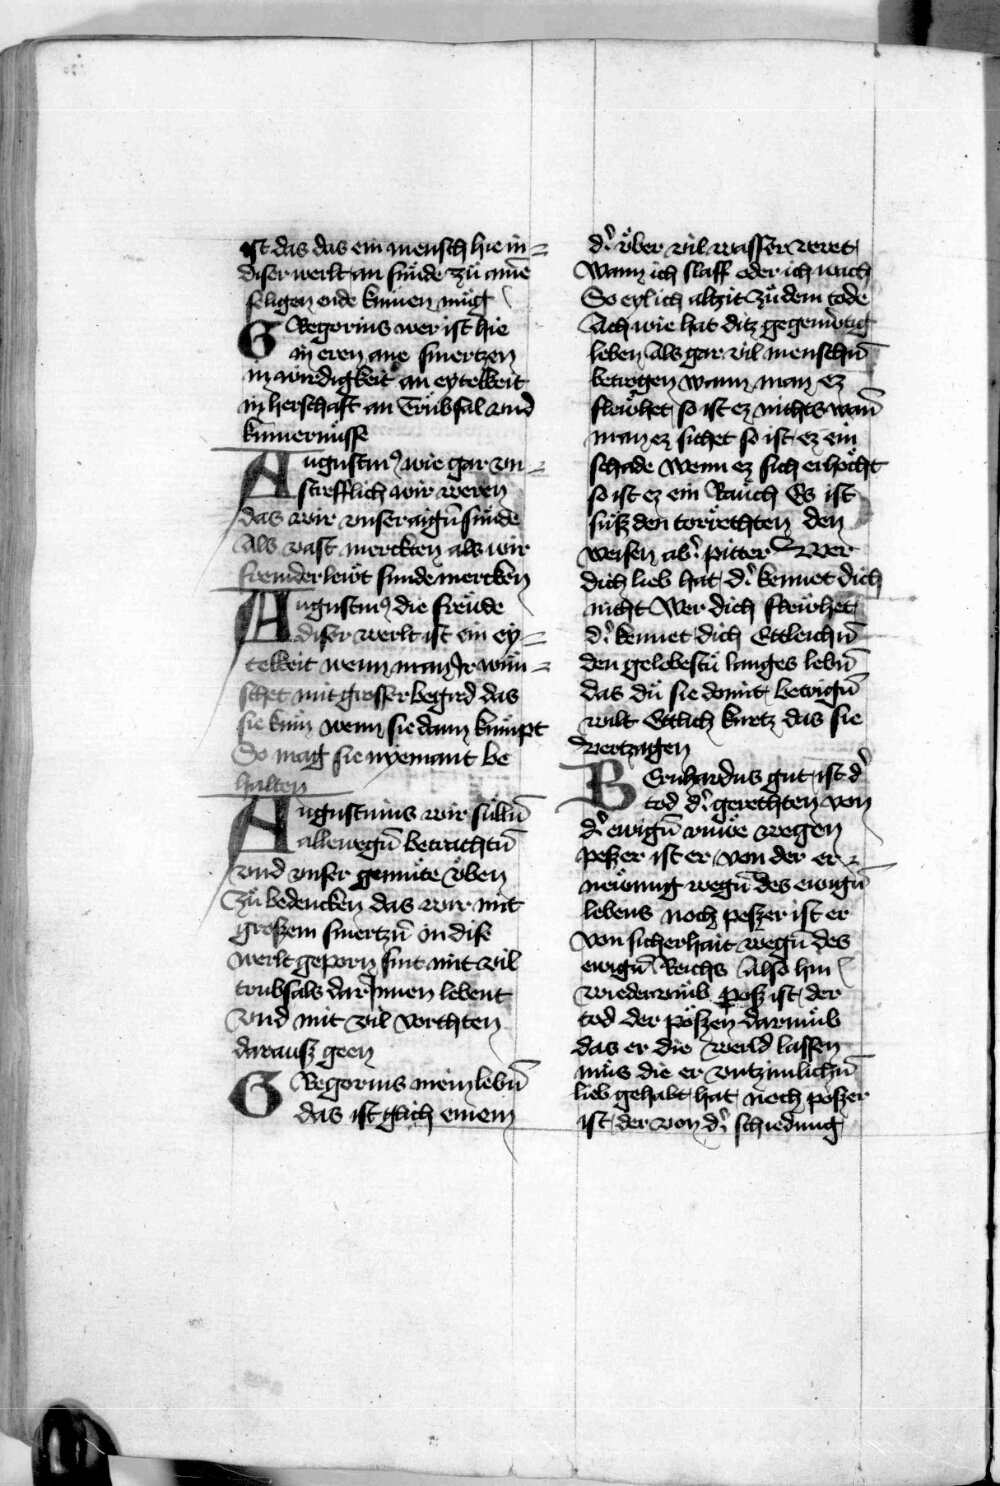 ist das das ein mensch hie in=
diser werlt an sünde zů aine
seligen ende kümen můg
GRegorius wer ist hie
in eren ane smertzen
in wirdigkeit an eytelkeit
in herschaft an Trübsal and
kümernüsse
Augustinꝰ wie gar vn=
strefflich wir weren
das wir vnser aigē sünde
Als vast merckten als wir
fremder lewt sunde mercken
Augustinꝰ die freüde
diser werlt ist ein ey=
telkeit wenn man Ir wün=
schet mit grosser begird das
sie kum wenn sie dann kumpt
So mag sie nyemant be
halten
Augustinus wir süllē
allewegē betrachtē
vnd vnser gemüte vͤben
zů bedencken das wir mit
groszem smertzē in dise
werlt geporn sint mit vil
trubsals dar Innen lebent
vnd mit vil vorchten
darausz geen
GRegorius mein lebē
das ist glich einem
d̾ vͤber vil wasser veret
Wann ich slaff oder ich wach
So eyl ich altzit zů dem tode
Ach wie hat ditz gegenw̓tig
leben Als gar vil menschē
betrogen wann man ez
flewhet so ist ez nichts wān
man ez sichet so ist ez ein
schade Wenn ez sich erhöcht
so ist ez ein Rauch Es ist
süsz den torrechten den
weisen ab̾ pitter Wer
dich lieb hat d̾ kennet dich
nicht Wer dich flewhet
d̾ kennet dich Ettleichē
den gelobestu langes lebē
das du sie domit betrigē
wilt Ettlich kurtz das sie
vertzagen
BErnhardus gut ist d̾
tod d̾ gerechten von
d̾ ewigē rwe wegen
peszer ist er von der er=
newung wegē des ewigē
lebens noch peszer ist er
von sicherhait wegē des
ewigē Reichs Also hin
wiederumb posz ist der
tod der pöszen darumb
das er die werld lassen
mus die er vntzimlichē
lieb gehabt hat noch poszer
ist der von d̾ schiedung